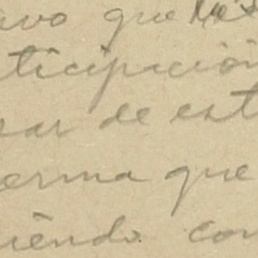 avo que les
ticipación
sar de est
orma que
iendo con